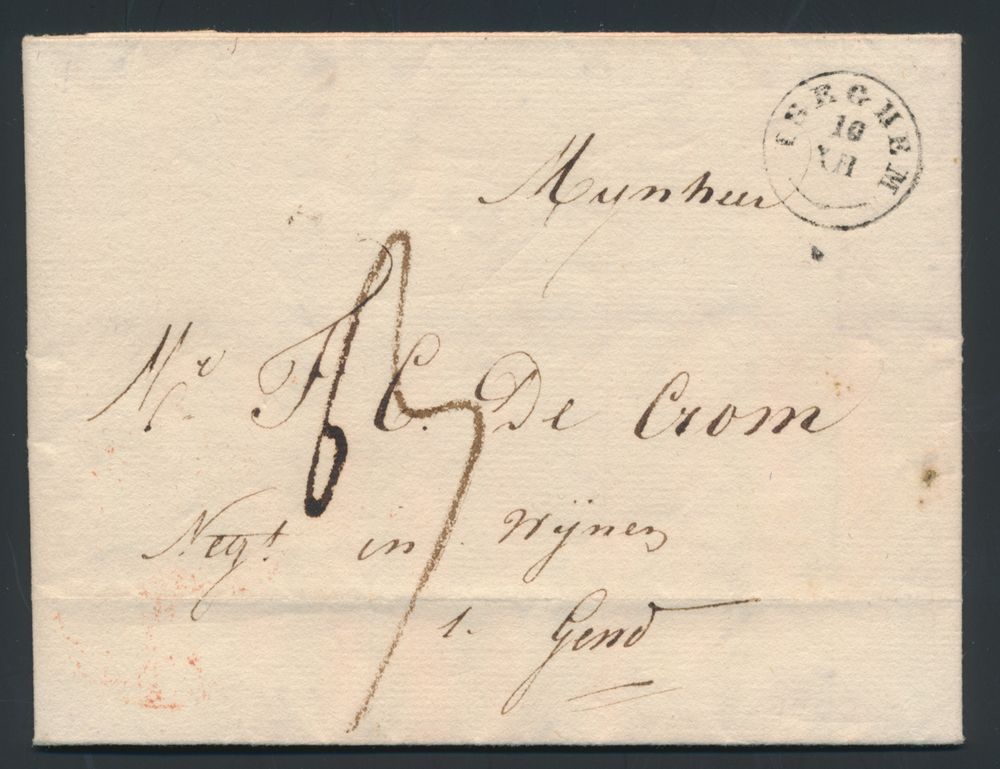 ISEGHEM
16
XII
Mynheer
Mr F C. De Crom
Negt. in Wijnen
Gend